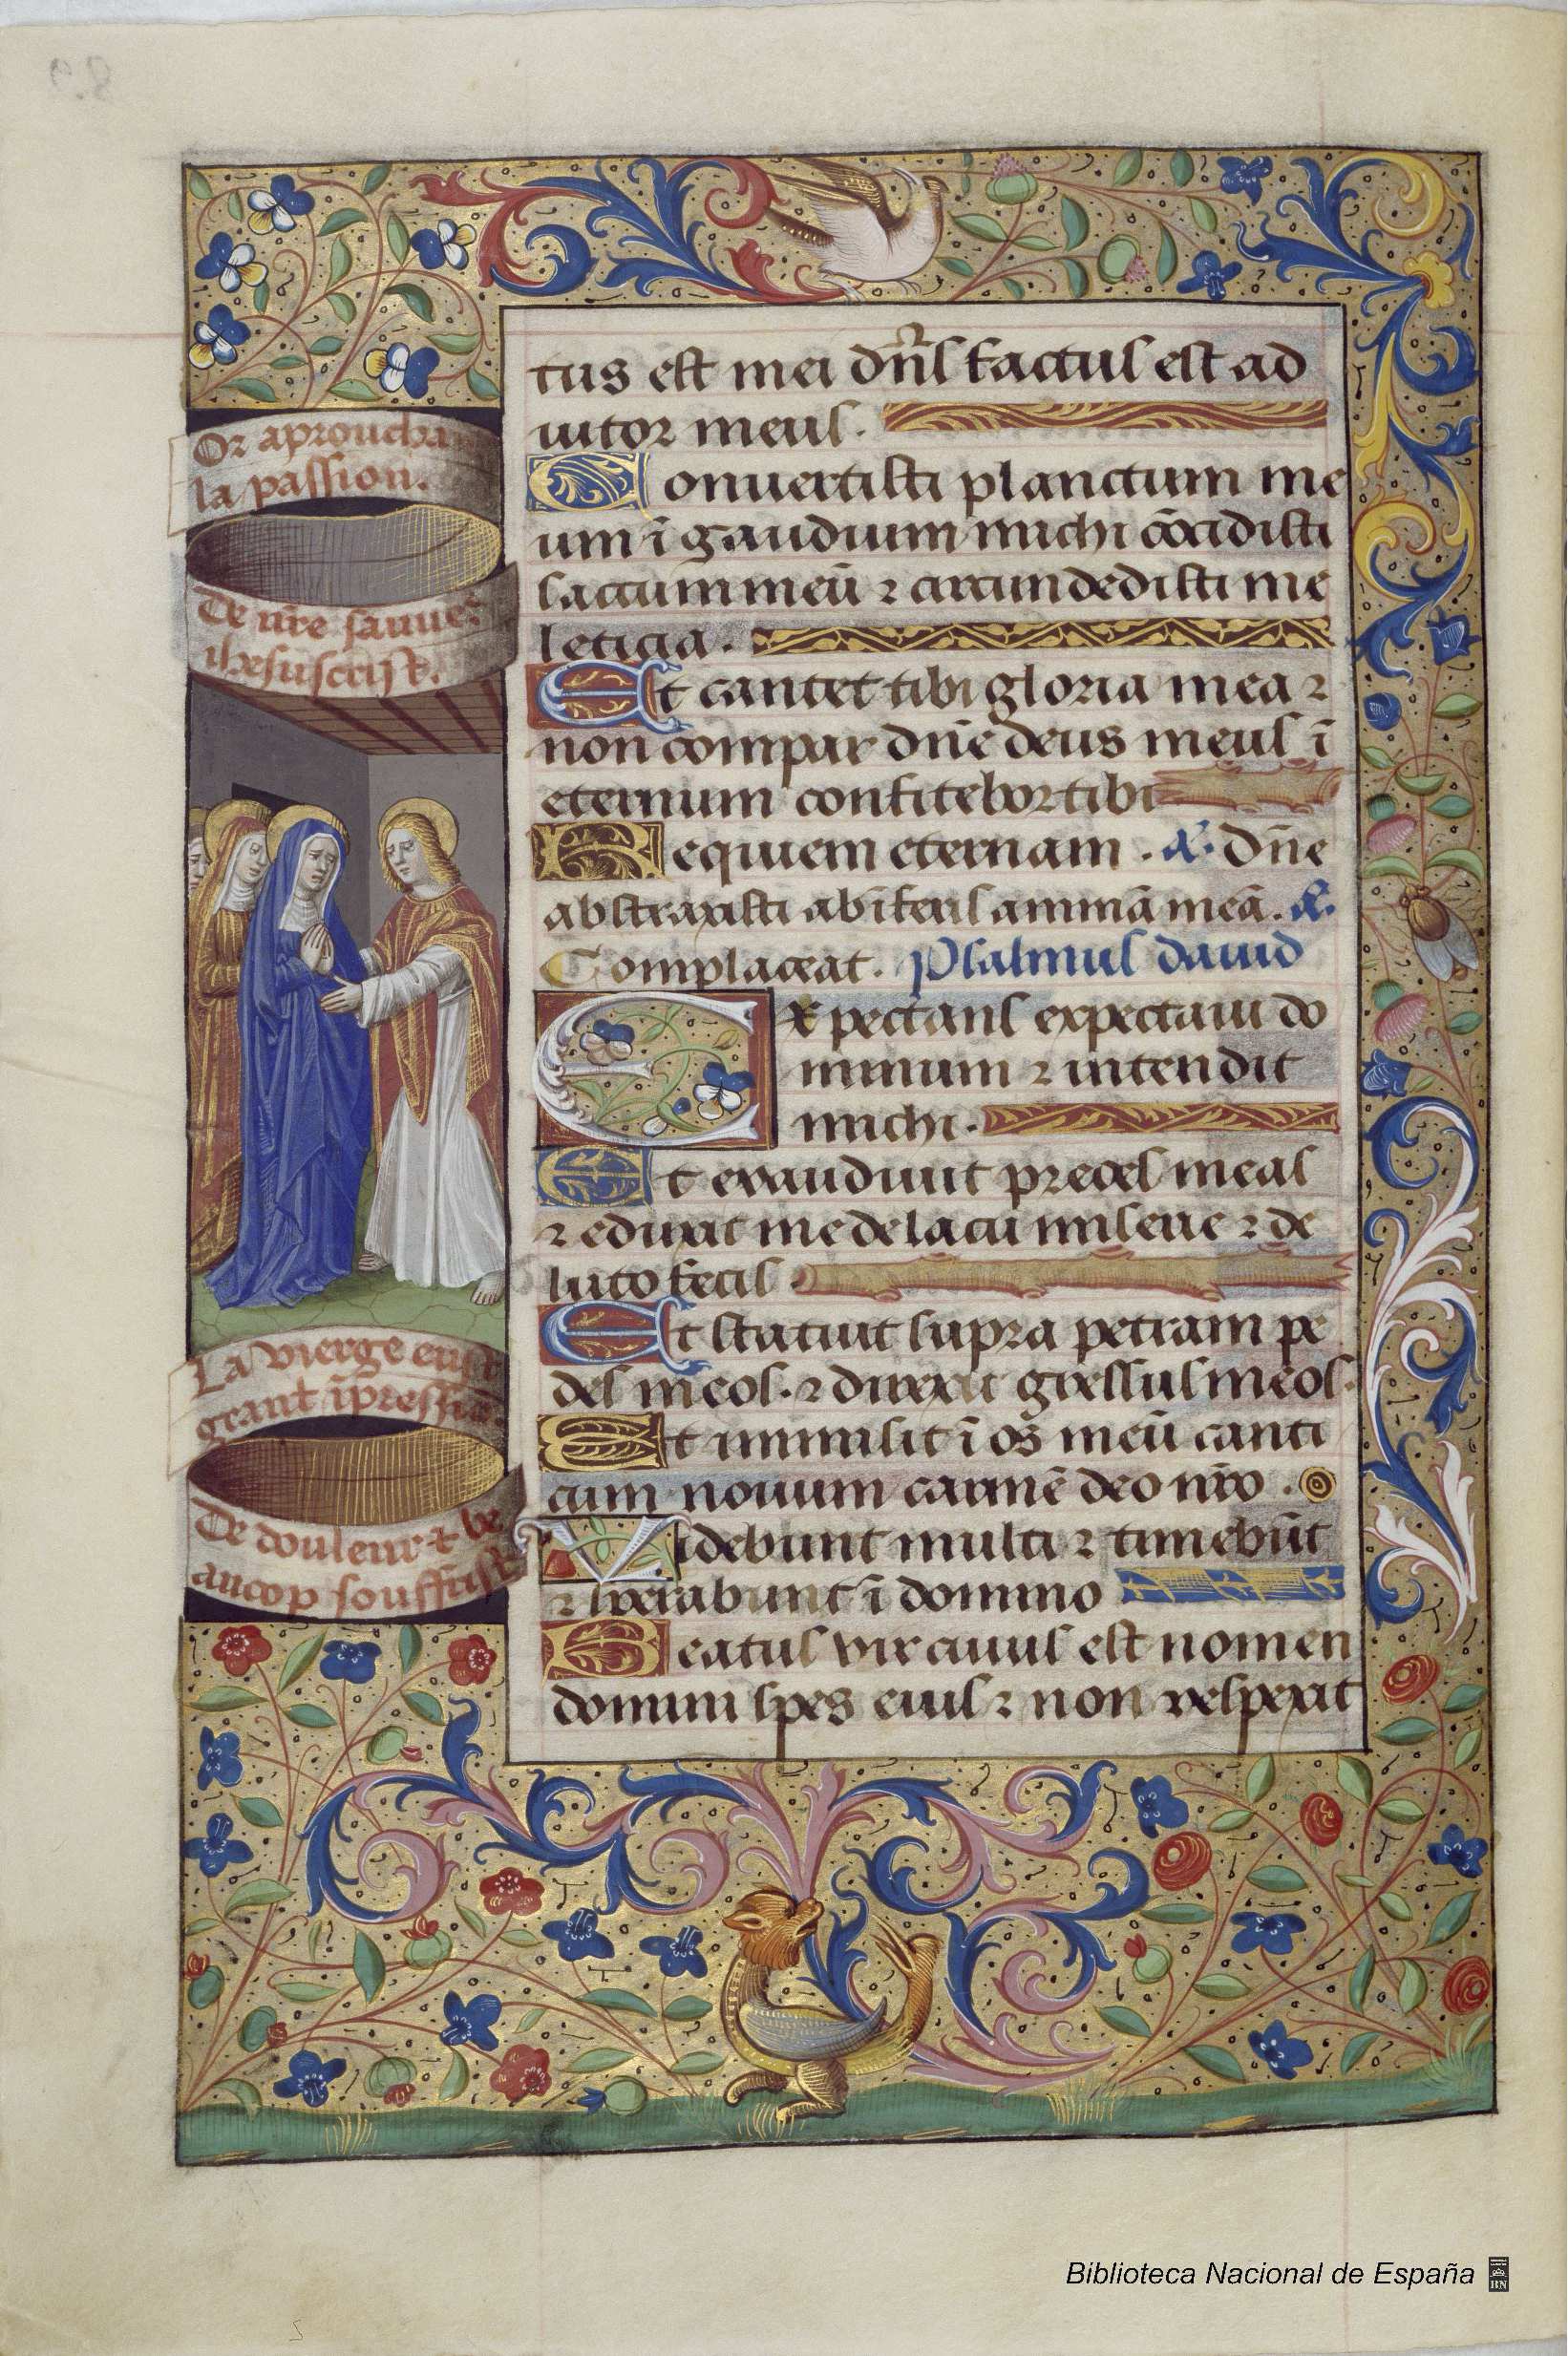 Or aproucha
la passion.
De nr̄e sauue.
ihesuscrist.
La vierge eust
grant īpressiō.
De douleur ⁊ be
aucop souffrist
tus est mei dn̄s factus est ad
iutor meus.
Conuertisti planctum me
um ī gaudium michi cōcidisti
saccum meū ⁊ circundedisti me
leticia.
Et cantet tibi gloria mea ⁊
non compar dn̄e deus meus ī
eternum confitebor tibi
Requiem eternam. a. Dn̄e
abstraxisti ab īferis animā meā. a.
Complaceat. Psalmus dauid
Expectans expectaui do
minum ⁊ intendit
michi.
Et exaudiuit preces meas
⁊ eduxit me de lacu miserie ⁊ de
luto fecis
Et statuit supra petram pe
des meos. ⁊ direxit gressus meos.
Et immisit ī os meū canti
cum nouum carmē deo nr̄o.
Videbunt multi ⁊ timebūt
⁊ sperabunt ī domino
Beatus vir cuius est nomen
domini spes eius ⁊ non respexit
Biblioteca Nacional de España